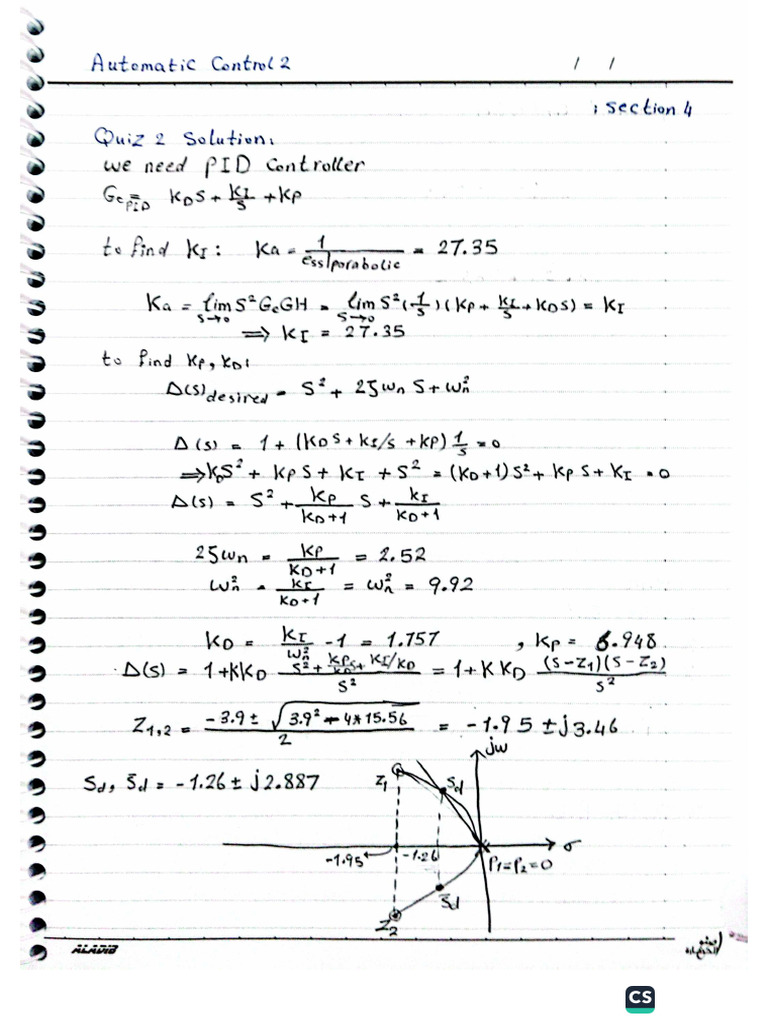 Automatic Control 2 / /
: section 4
Quiz 2 Solution:
we need PID Controller
Gc PID = KDS + KI/S + KP
to find KI: Ka = 1/ess|parabolic = 27.35
Ka = lim S→0 S² Gc GH = lim S→0 S² (1/S) (KP + KI/S + KDS) = KI
⟹ KI = 27.35
to find KP, KD:
Δ(S)desired = S² + 2ζωn S + ωn²
Δ(S) = 1 + (KDS + KI/S + KP) 1/S = 0
⟹ KDS² + KPS + KI + S² = (KD+1)S² + KPS + KI = 0
Δ(S) = S² + KP/(KD+1) S + KI/(KD+1)
2ζωn = KP/(KD+1) = 2.52
ωn² = KI/(KD+1) = ωn² = 9.92
KD = KI/ωn² - 1 = 1.757 , KP = 6.948
Δ(S) = 1 + KKD (S² + KP/KD S + KI/KD)/S² = 1 + KKD (S-Z1)(S-Z2)/S²
Z1,2 = (-3.9 ± √(3.9² - 4*15.56))/2 = -1.95 ± j3.46
jω
Sd, S̄d = -1.26 ± j2.887
Z1 Sd
σ
-1.95 -1.26 P1=P2=0
S̄d
Z2
ALADIB
CS